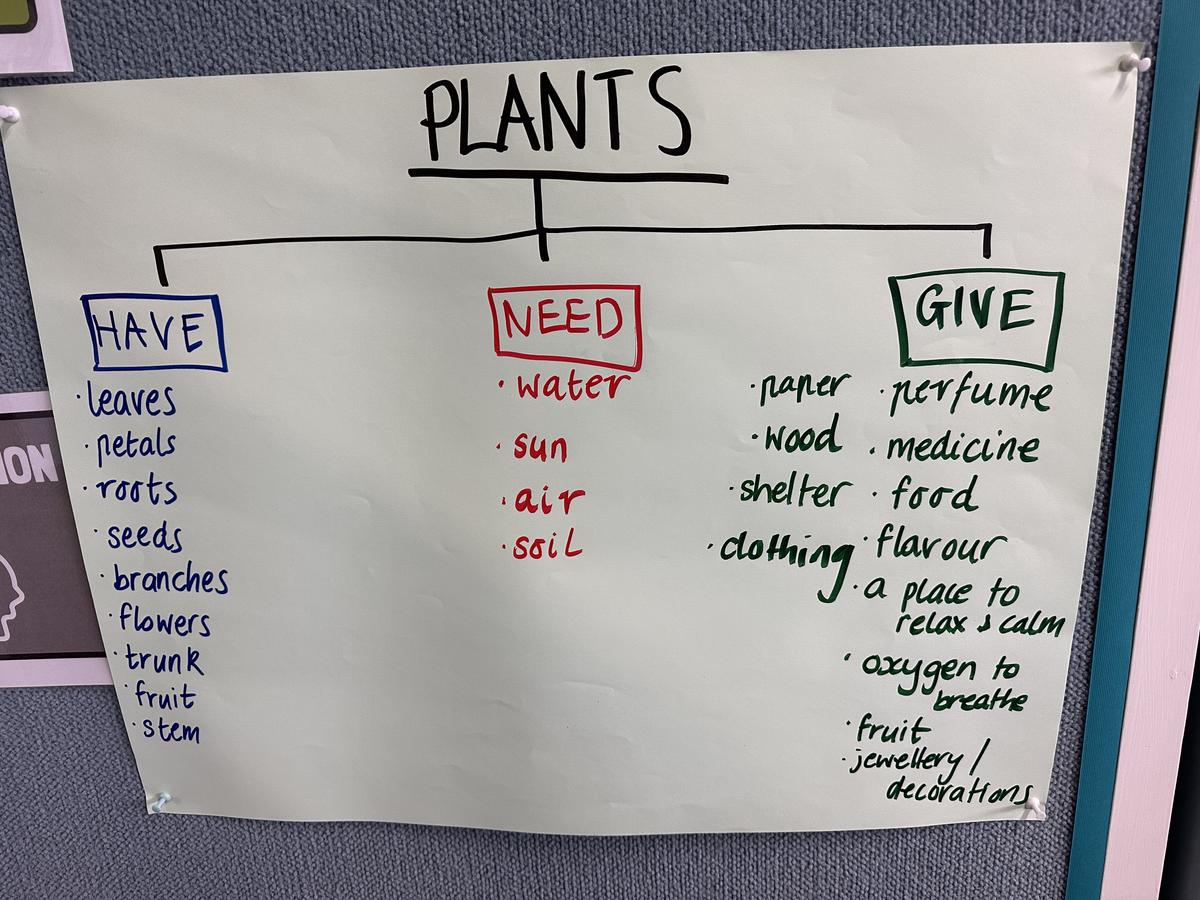 PLANTS
HAVE
· leaves
· petals
· roots
· seeds
· branches
· flowers
· trunk
· fruit
· stem
NEED
· water
· sun
· air
· soil
GIVE
· paper
· wood
· shelter
· clothing
· perfume
· medicine
· food
· flavour
· a place to
relax & calm
· oxygen to
breathe
· fruit
· jewellery /
decorations
ION